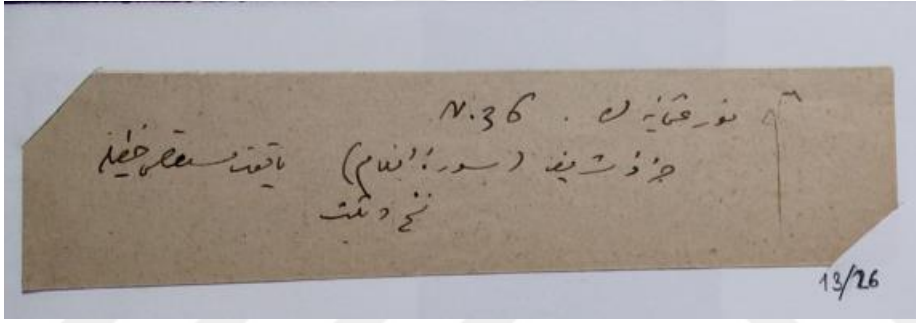 نور عثمانیه ك . N.36
جزؤ شریف (سورۀ انعام) یاقوت مستعصمی خطیله
نسخ و ثلث
13/26